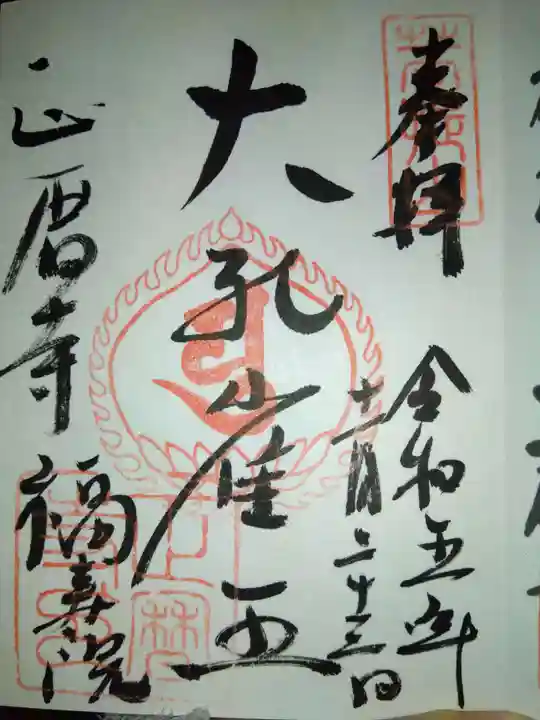 奉拝
令和五年
十二月二十三日
大孔雀王
正暦寺福寿院